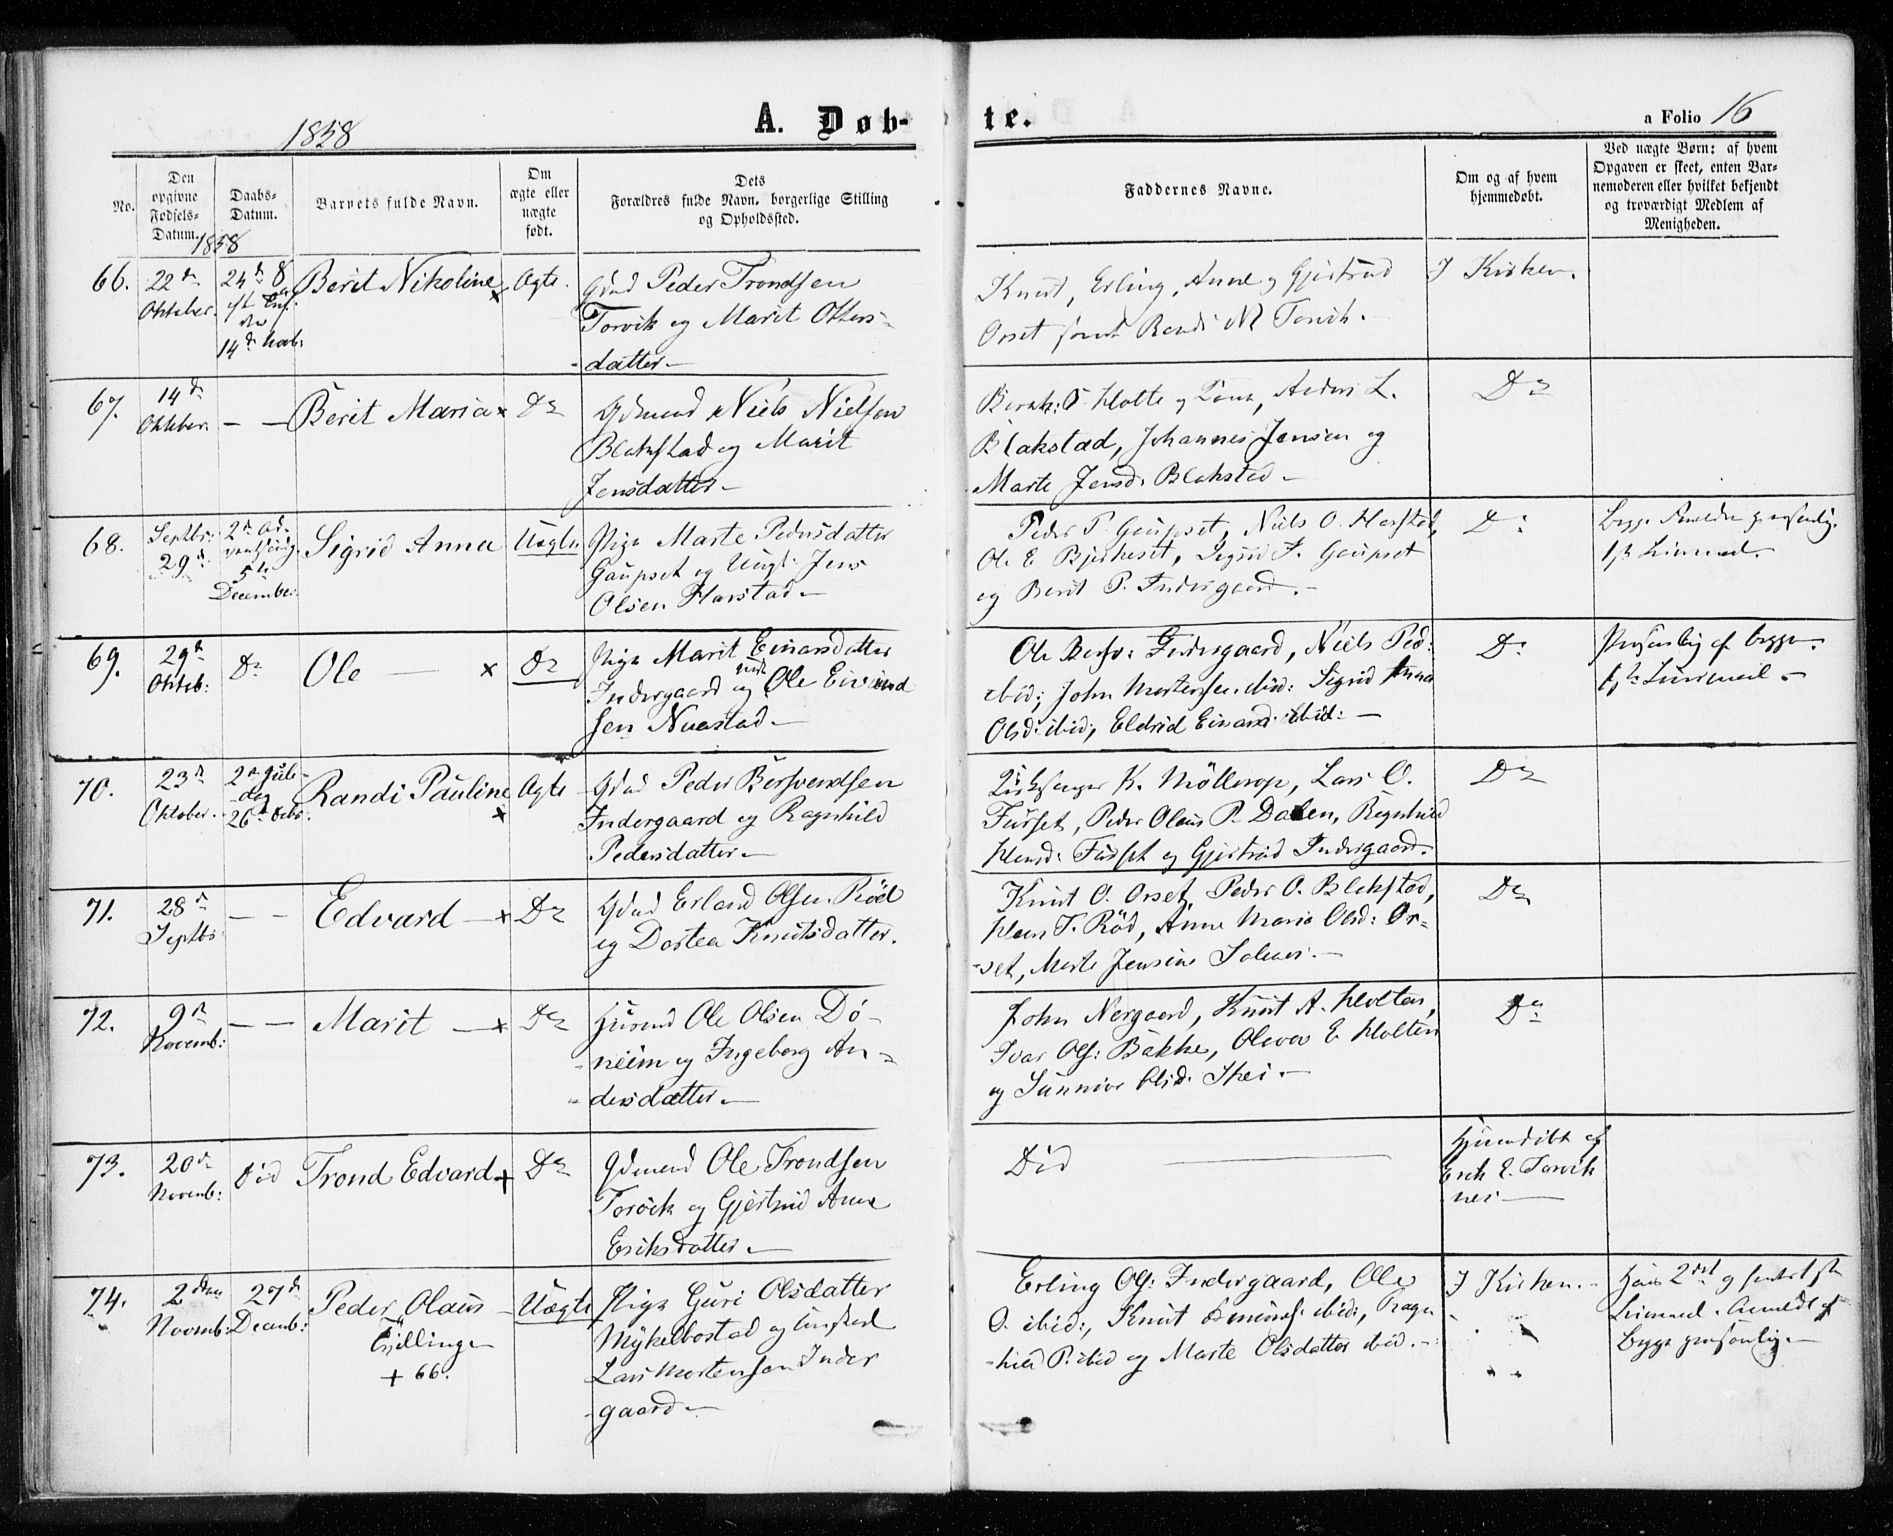 1858
A. Døb- te.
a Folio 16
No.
Den opgivne Fødsels-Datum.
Daabs-Datum.
Barnets fulde Navn.
Om ægte eller uægte født.
Dets Forældres fulde Navn, borgerlige Stilling og Opholdssted.
Faddernes Navne.
Om og af hvem hjemmedøbt.
Ved uægte Børn: af hvem Opgaven er skeet, enten Barnemoderen eller hvilket bekjendt og troværdigt Medlem af Menigheden.
1858
66.
22de
Oktober.
14d Novb:
Berit Nikoline
Ægte.
Gbmd Peder Trondsen
Torvik og Marit Otters-
-datter
Knut, Erling, Anne og Gjertrud
Orset samt Randi Torvik.
I Kirken.
67.
14d
Oktober.
— —
Berit Maria
Do
Gbmand Niels Nielsen
Blakstad og Marit
Jensdatter
Holte og Anders L.
Blakstad, Johannes Jensen og
Marte Jensd: Blakstad
Do
68.
Septbr:
29d
2d Ad-
ventssøndg.
5te
December.
Sigrid Anna
Uægte
Pige Marte Pedersdatter
Gaupset og Ungk: Jens
Olsen Harstad
Peder P. Gaupset, Niels O. Harstad,
Ole E. Bjerkeset, Sigrid Gaupset
og Berit P. Indergaard.
Do
Begge Forældre personlig.
1ste Leiermaal.
69.
29d
Oktob:
Do
Ole
Do
Pige Marit Einarsdatter
Indergaard og Ole Eivind
sen Naastad
Ole Indergaard, Niels Ped:
ibid; John Mortensen ibid: Sigrid Anna
Olsd: ibid; Eldrid Einarsd: ibid:
Do
Personlig af begge.
1ste Leiermaal
70.
23d
Oktober.
2den Jule-
-dag
26d Decbr:
Randi Pauline
Ægte
Gbmd Peder Bersvendsen
Indergaard og Ragnhild
Pedersdatter
Kirkesanger K. Møllerop, Lars O.
Furset, Peder Olaus P. Dalen, Ragnhild
Furset og Gjertrud Indergaard.
Do
71.
28d
Septbr:
— —
Edvard
Do
Gbmd Erland Olsen Röd
og Dortea Knutsdatter.
Knut O. Orset, Peder O. Blakstad,
T. Röd, Anne Maria Olsd: Or-
-set, Marte Jensine
Do
72.
9d
Novemb:
— —
Marit
Do
Husmd Ole Olsen Dö-
-neim og Ingeborg An-
-dersdatter
John Nergaard, Knut A. Holten,
Ivar Ols: Bakke, E. Holten
og Sunniva Olsd:
Do
73.
20d
Novemb:
Död
Trond Edvard
Do
Gbmand Ole Trondsen
Torvik og Gjertrud Anne
Eriksdatter
Död
Hjemdöbt af
Erik E. Torvik
74.
2den
Novemb:
27d
Decemb:
Peder Olaus
Tvillinge
+ 66.
Uægte
Pige Guri Olsdatter
Myklebostad og
Lars Mortensen Inder
gaard
Erling Ols: Indergaard, Ole
O. ibid:, Knut ibid:, Ragn
-hild P. ibid og Marte Olsdatter ibid.
I Kirken.
Hans 2det og hendes 1ste
Leiermaal. Anmeldt af
Begge personlig.